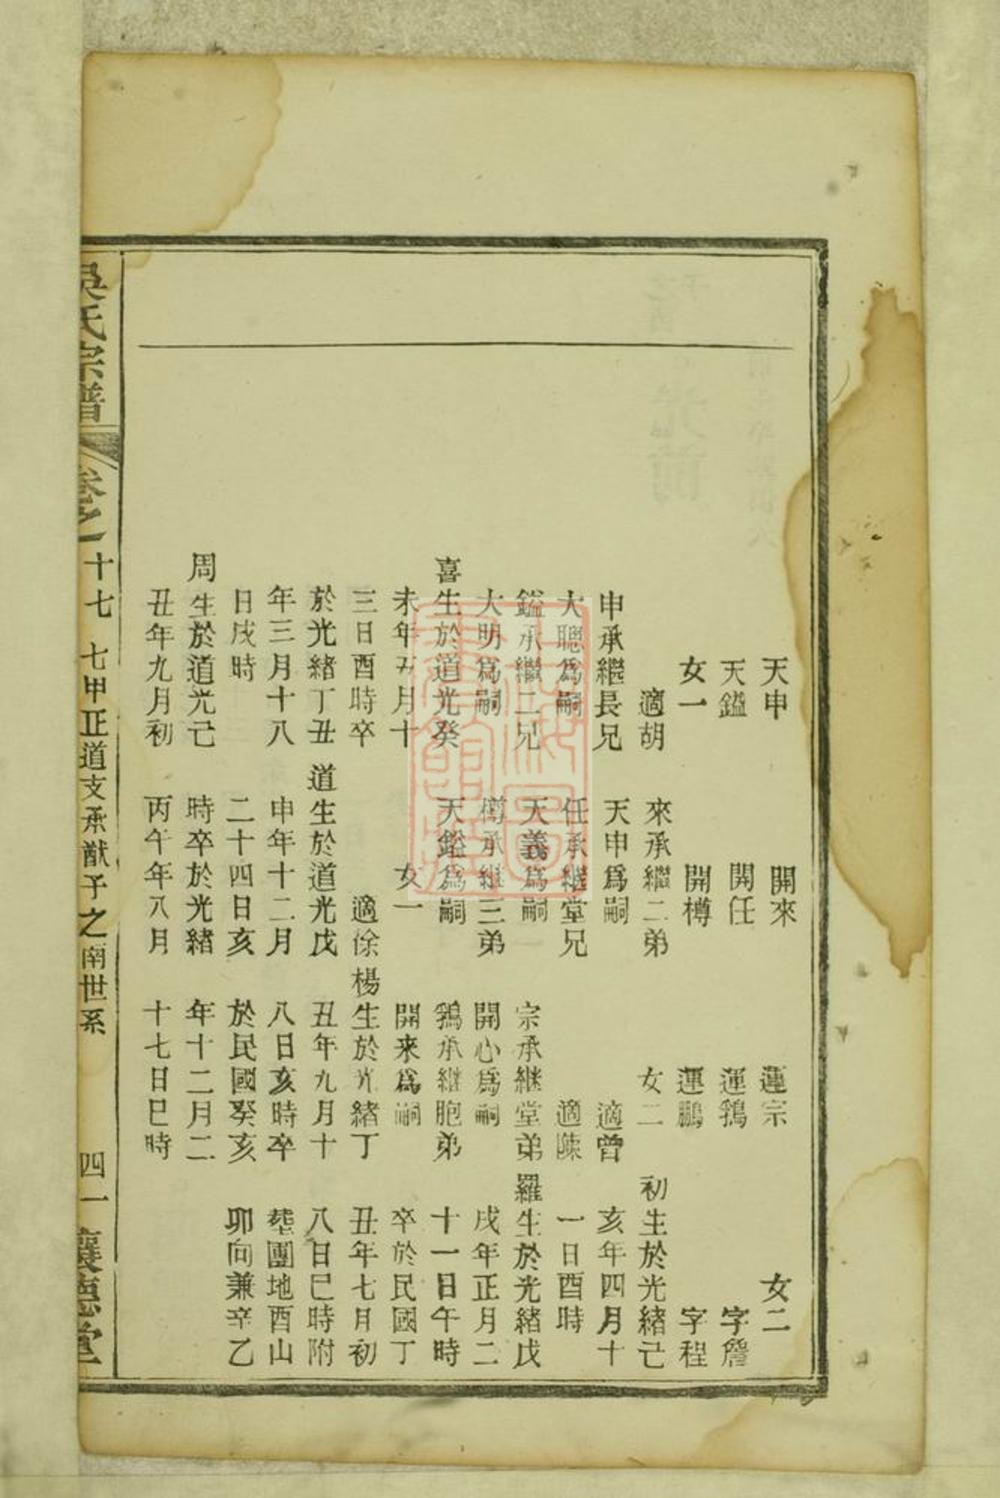 天申
天鎰
女一
適胡
申承繼長兄
大聰爲嗣
鎰承繼二兄
大明爲嗣
喜生於道光癸
未年五月十
三日酉時卒
於光緒丁丑
年三月十八
日戌時
周生於道光己
丑年九月初
開來
開任
開樽
來承繼二弟
天申爲嗣
任承継堂兄
天義爲嗣
樽承継三弟
天鎰爲嗣
女一
適徐
道生於道光戊
申年十二月
二十四日亥
時卒於光緒
丙午年八月
運宗
運鵷
運鵬
女二
適曾
適陳
宗承継堂弟
開心爲嗣
鵷承継胞弟
開来爲嗣
楊生於光緒丁
丑年九月十
八日亥時卒
於民國癸亥
年十二月二
十七日巳時
女二
字詹
字程
初生於光緒己
亥年四月十
一日酉時
羅生於光緒戊
戌年正月二
十一日午時
卒於民國丁
丑年七月初
八日巳時附
塟團地酉山
卯向兼辛乙
吳氏宗譜 卷之十七 七甲正道支承猷子之南世系 四一 讓德堂